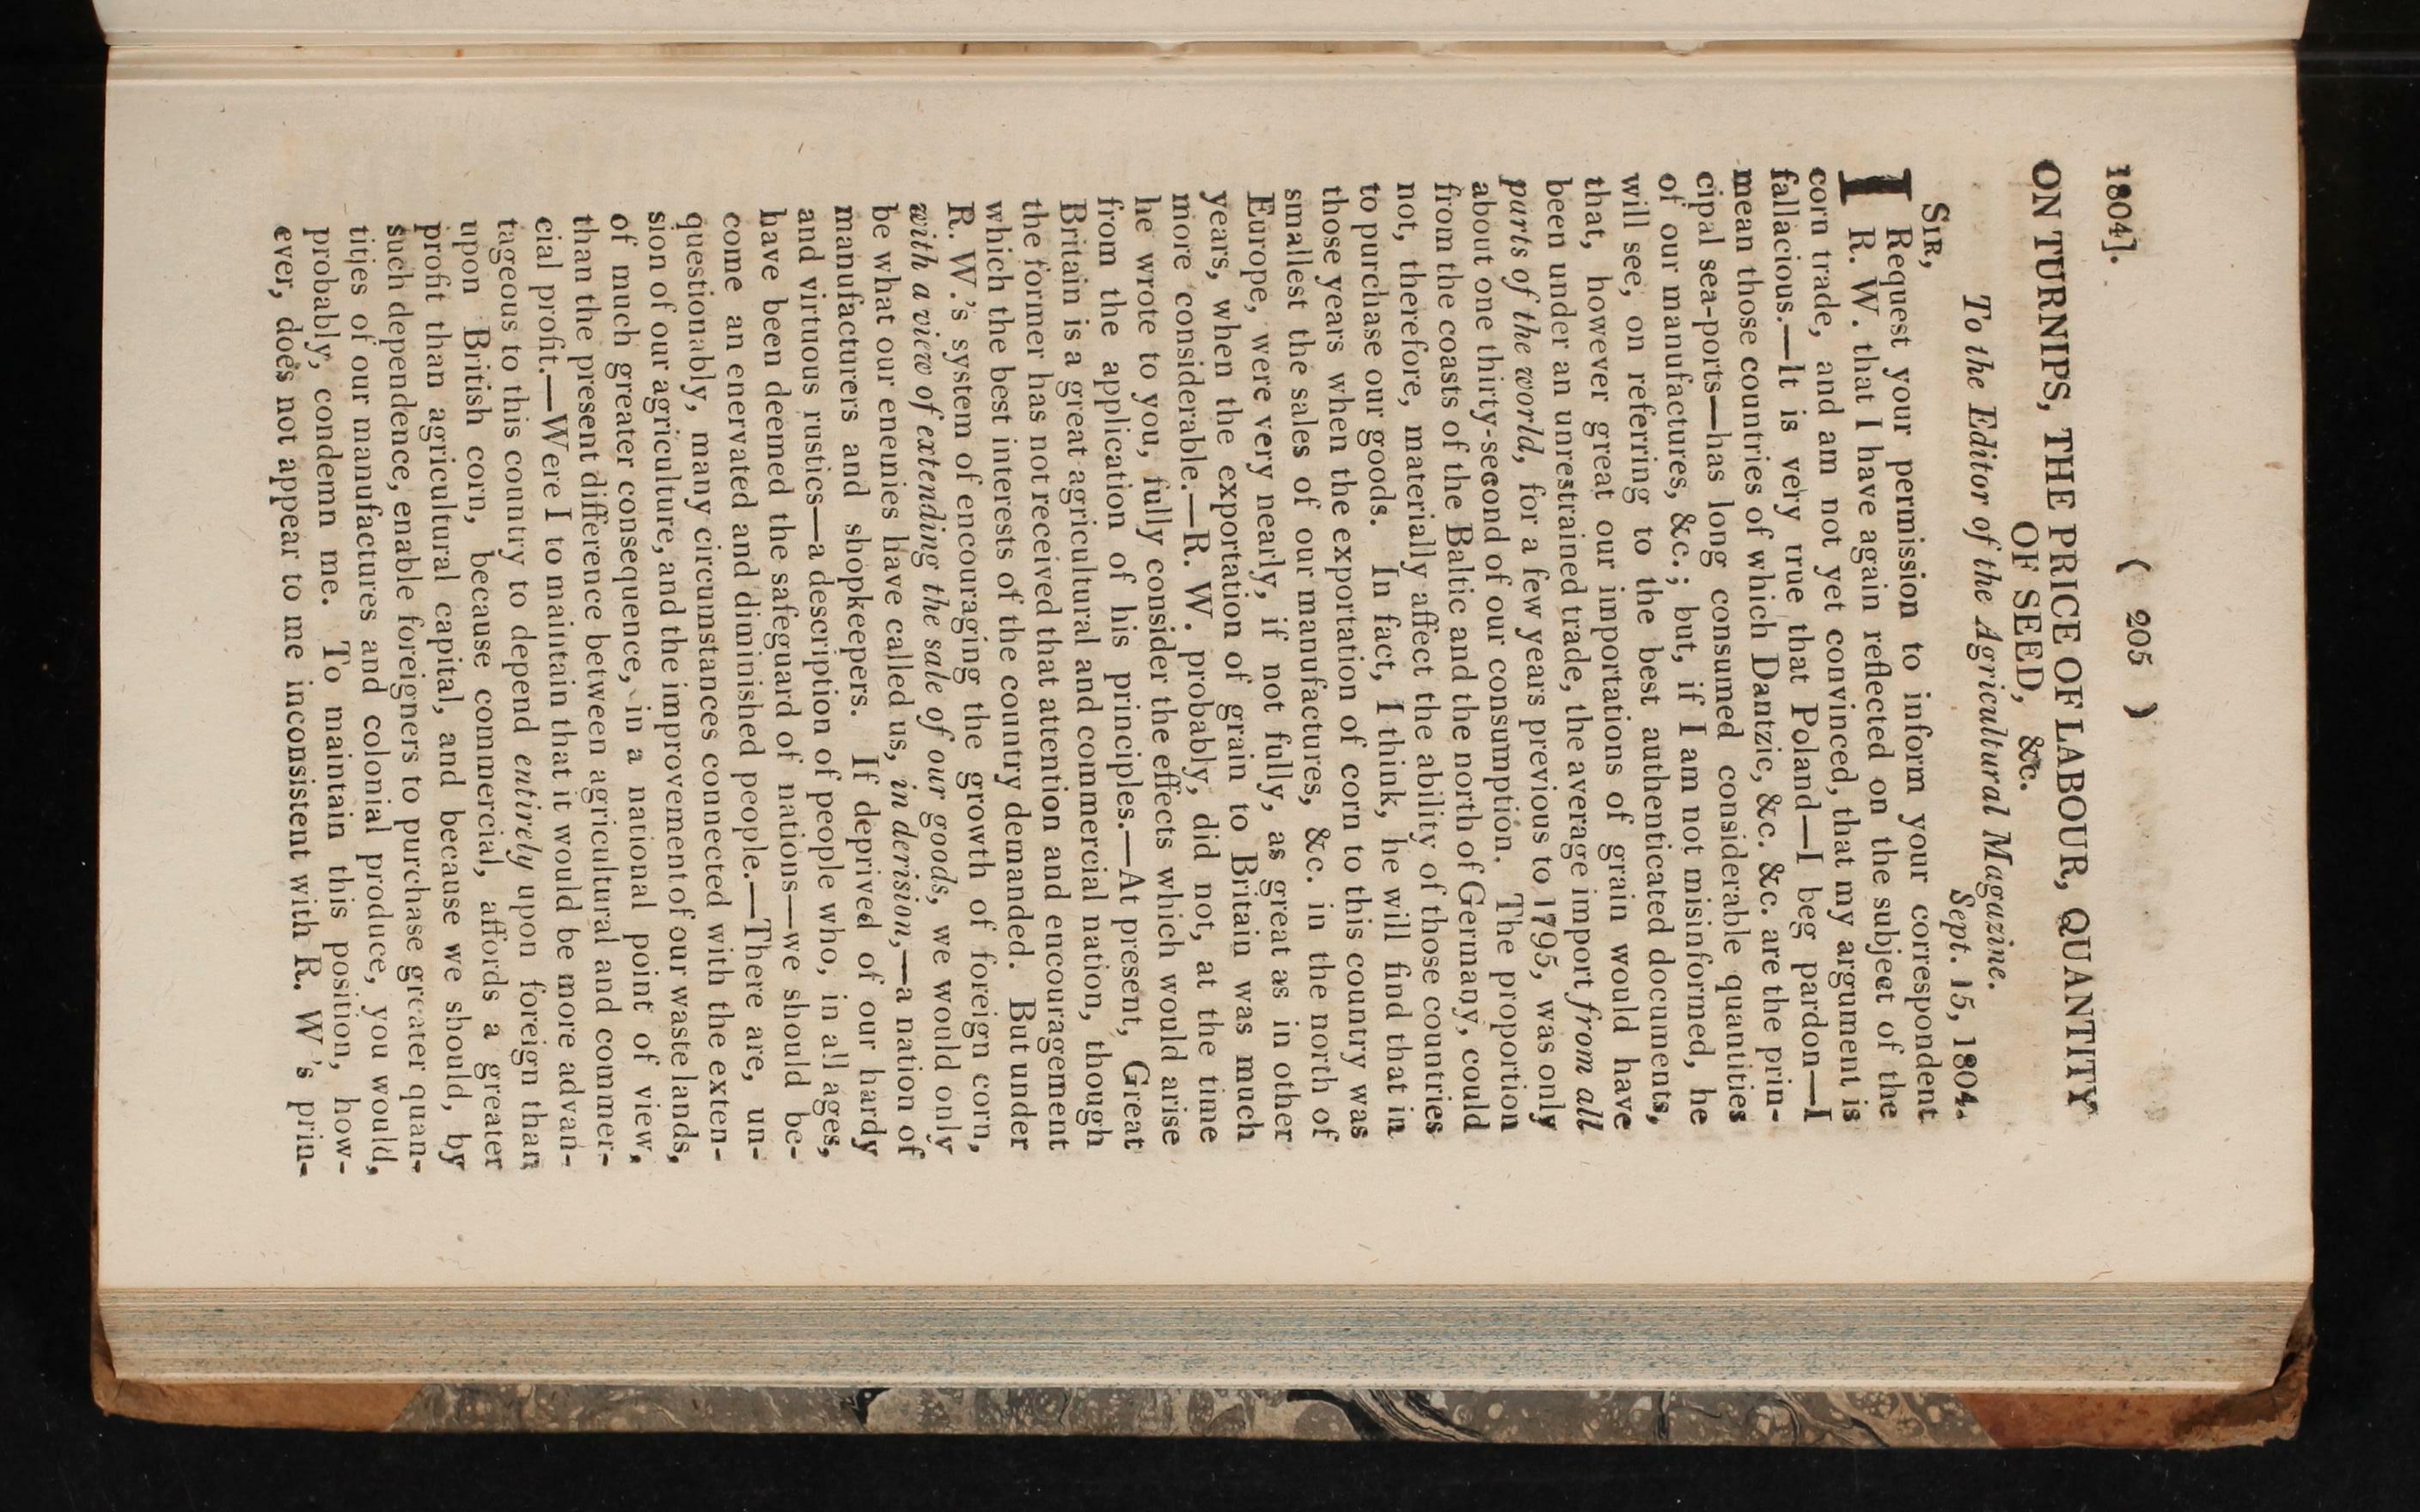 1804].
( 205 )
ON TURNIPS, THE PRICE OF LABOUR, QUANTITY
OF SEED, &c.
To the Editor of the Agricultural Magazine.
SIR,
Sept. 15, 1804.
I Request your permission to inform your correspondent
R. W. that I have again reflected on the subject of the
corn trade, and am not yet convinced, that my argument is
fallacious.—It is very true that Poland—I beg pardon—I
mean those countries of which Dantzic, &c. &c. are the prin-
cipal sea-ports—has long consumed considerable quantities
of our manufactures, &c.; but, if I am not misinformed, he
will see, on referring to the best authenticated documents,
that, however great our importations of grain would have
been under an unrestrained trade, the average import from all
parts of the world, for a few years previous to 1795, was only
about one thirty-second of our consumption. The proportion
from the coasts of the Baltic and the north of Germany, could
not, therefore, materially affect the ability of those countries
to purchase our goods. In fact, I think, he will find that in
those years when the exportation of corn to this country was
smallest the sales of our manufactures, &c. in the north of
Europe, were very nearly, if not fully, as great as in other
years, when the exportation of grain to Britain was much
more considerable.—R. W. probably, did not, at the time
he wrote to you, fully consider the effects which would arise
from the application of his principles.—At present, Great
Britain is a great agricultural and commercial nation, though
the former has not received that attention and encouragement
which the best interests of the country demanded. But under
R. W.'s system of encouraging the growth of foreign corn,
with a view of extending the sale of our goods, we would only
be what our enemies have called us, in derision,—a nation of
manufacturers and shopkeepers. If deprived of our hardy
and virtuous rustics—a description of people who, in all ages,
have been deemed the safeguard of nations—we should be-
come an enervated and diminished people.—There are, un-
questionably, many circumstances connected with the exten-
sion of our agriculture, and the improvement of our waste lands,
of much greater consequence, in a national point of view,
than the present difference between agricultural and commer-
cial profit.—Were I to maintain that it would be more advan-
tageous to this country to depend entirely upon foreign than
upon British corn, because commercial, affords a greater
profit than agricultural capital, and because we should, by
such dependence, enable foreigners to purchase greater quan-
tities of our manufactures and colonial produce, you would,
probably, condemn me. To maintain this position, how-
ever, does not appear to me inconsistent with R. W's prin-